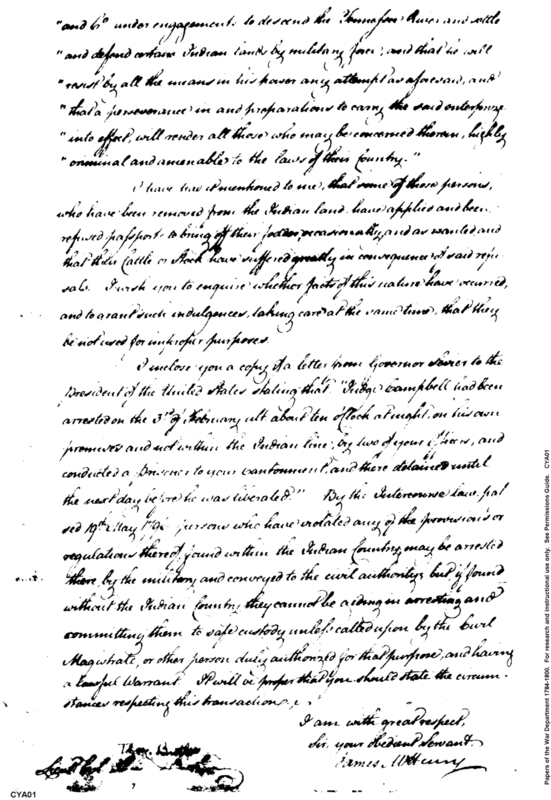 "and Co under engagements to descend the Tennessee River and settle
"and defend certain Indian lands by military force; and that he will
"resist by all the means in his power any attempt as aforesaid, and
"that a perseverance in and preparations to carry the said enterprize
"into effect, will render all those who may be concerned therein, highly
"criminal and amenable to the laws of their Country."
I have had it mentioned to me, that some of those persons,
who have been removed from the Indian land have applied and been
refused passports to bring off their fodder, occasionally, and as wanted and
that their Cattle or Stock have suffered greatly in consequence of said refu
sals. I wish you to enquire whether facts of this nature have occurred,
and to grant such indulgences, taking care at the same time, that they
be not used for improper purposes.
I inclose you a copy of a letter from Governor Sevier to the
President of the United States stating that "Judge Campbell had been
arrested on the 3rd of February ult about ten oClock at night, on his own
premises and not within the Indian line, by two of your officers, and
conducted a Prisoner to your cantonment, and there detained until
the next day before he was liberated." By the Intercourse Law, pas
sed 19th May 1796 persons who have violated any of the provisions or
regulations thereof, found within the Indian Country, may be arrested
there by the military, and conveyed to the civil authority, but if found
without the Indian Country, they cannot be aiding in arresting and
committing them to safe custody unless called upon by the Civil
Magistrate, or other person duly authorized for that purpose, and having
a lawful Warrant. It will be proper that you should state the circum-
stances respecting this transaction.
I am with great respect,
Sir, your obedient Servant.
James McHenry
Thos. Butler
Lieut Col
CYA01
Papers of the War Department 1784-1800. For research and instructional use only. See Permissions Guide. CYA01